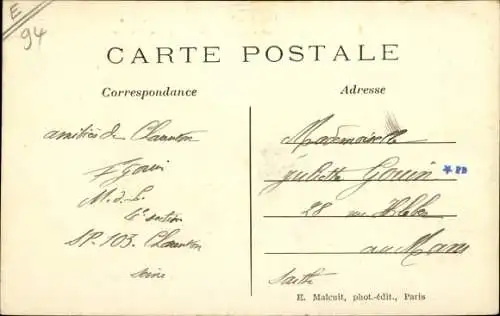 E
94
CARTE POSTALE
Correspondance
Adresse
amitiés de Charenton
F Gouin
M. d. L.
4e section
SP. 103. Charenton
Seine
Mademoiselle
Juliette Gouin
28 rue Kléber
au Mans
Sarthe
E. Malcuit, phot.-édit., Paris